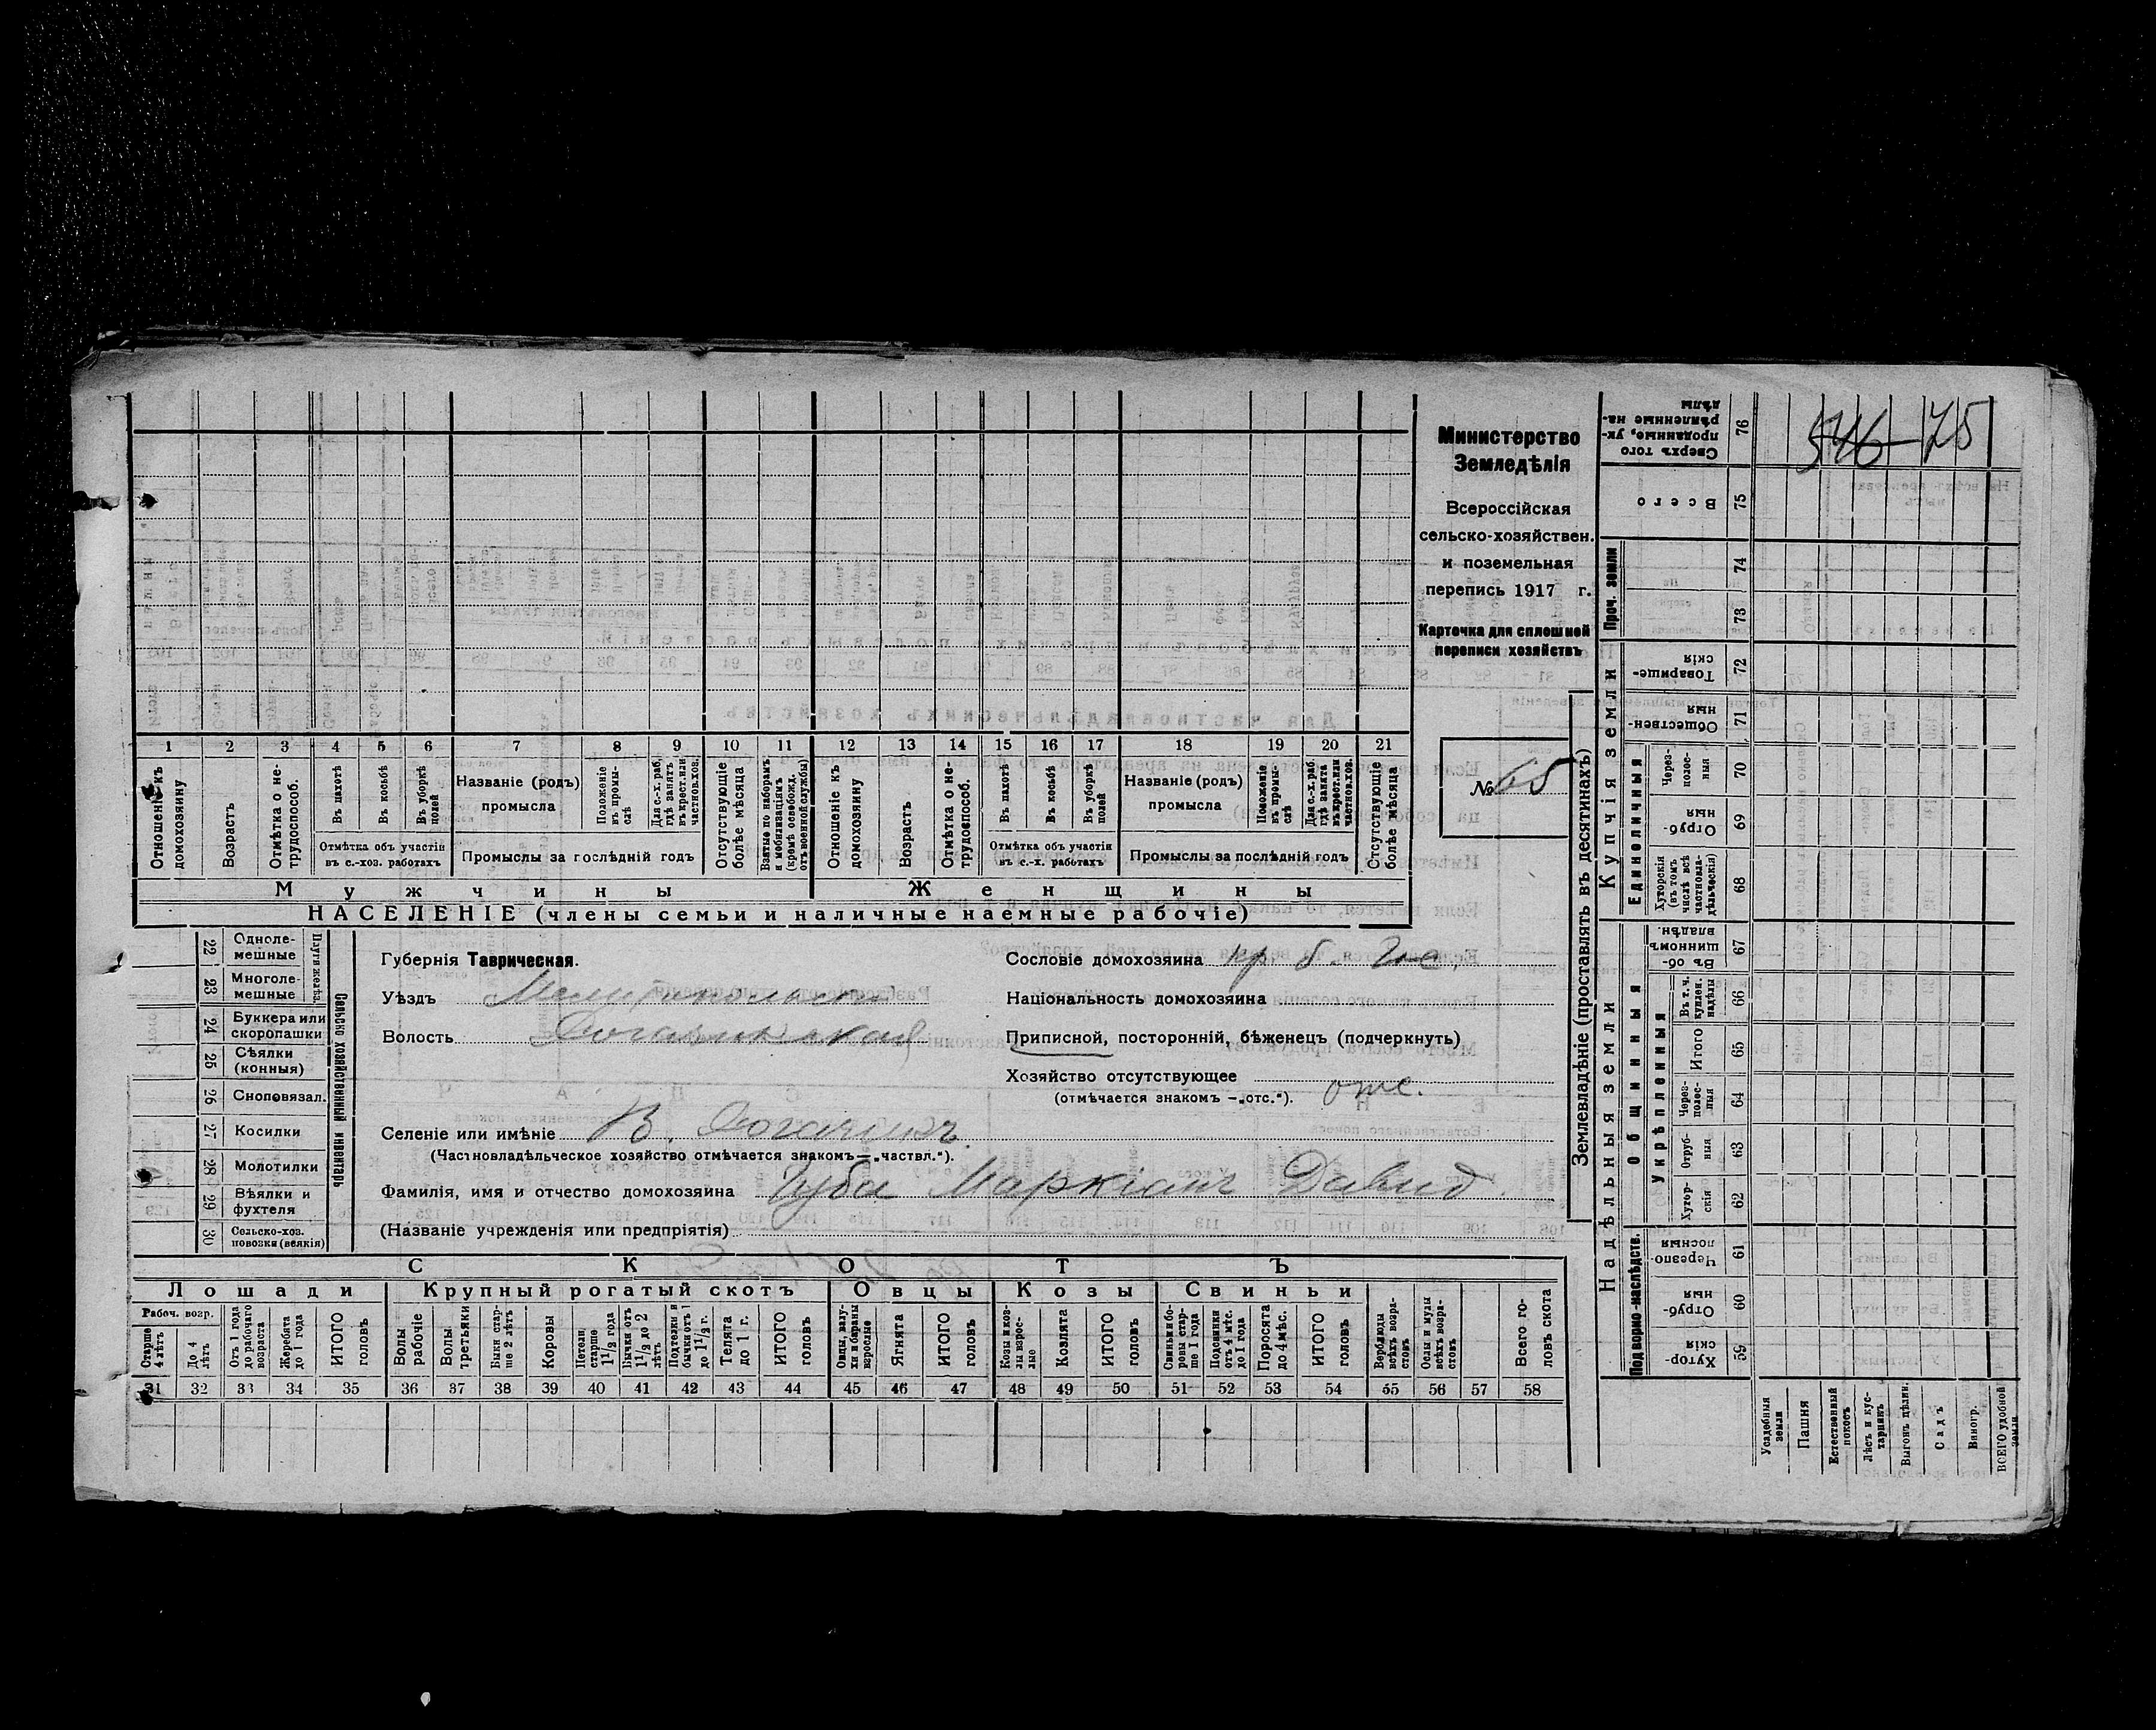 546 75
Министерство
Земледѣлія
Всероссійская
сельско-хозяйствен.
и поземельная
перепись 1917 г.
Карточка для сплошной
переписи хозяйствъ
№ 65
1 2 3 4 5 6 7 8 9 10 11 12 13 14 15 16 17 18 19 20 21
Отношеніе къ домохозяину
Возрастъ
Отмѣтка о не-трудоспособ.
Въ пахотѣ
Въ косьбѣ
Въ уборкѣ полей
Отмѣтка объ участіи
въ с.-хоз. работахъ
Названіе (родъ)
промысла
Положеніе въ промы-слѣ
Для с.-х. раб. гдѣ занятъ въ крест. или частнов. хоз.
Промыслы за послѣдній годъ
Отсутствующіе болѣе мѣсяца
Взятые по наборамъ и мобилизаціямъ (кромѣ освобожд. отъ военной службы)
Отношеніе къ домохозяину
Возрастъ
Отмѣтка о не-трудоспособ.
Въ пахотѣ
Въ косьбѣ
Въ уборкѣ полей
Отмѣтка объ участіи
въ с.-х. работахъ
Названіе (родъ)
промысла
Положеніе въ промы-слѣ
Для с.-х. раб. гдѣ занята въ крест. или частнов. хоз.
Промыслы за послѣдній годъ
Отсутствующіе болѣе мѣсяца
Мужчины Женщины
НАСЕЛЕНІЕ (члены семьи и наличные наемные рабочіе)
Сельско хозяйственный инвентарь
22 Одноле-мешные
23 Многоле-мешные
24 Буккера или скоропашки
25 Сѣялки (конныя)
26 Сноповязал.
27 Косилки
28 Молотилки
29 Вѣялки и фухтеля
30 Сельско-хоз. повозки (всякія)
Губернія Таврическая.
Уѣздъ Мелитопольскій
Волость Рогачикская
Селеніе или имѣніе В. Рогачикъ.
(Частновладѣльческое хозяйство отмѣчается знакомъ — „частвл.“).
Фамилія, имя и отчество домохозяина Губа Маркіанъ Давид.
(Названіе учрежденія или предпріятія)
Сословіе домохозяина кр. б.
Національность домохозяина
Приписной, посторонній, бѣженецъ (подчеркнуть)
Хозяйство отсутствующее отс.
(отмѣчается знакомъ — „отс.“).
СКОТЪ
Лошади Крупный рогатый скотъ Овцы Козы Свиньи
Рабоч. возр.
Старше 4 лѣтъ
До 4 лѣтъ
Отъ 1 года до рабочаго возраста
Жеребята до 1 года
ИТОГО головъ
Волы рабочіе
Волы третьяки
Быки стар-ше 2 лѣтъ
Коровы
Нетели старше 1 1/2 года
Бычки отъ 1 1/2 до 2 лѣтъ
Подтелки и бычки отъ 1 до 1 1/2 г.
Телята до 1 г.
ИТОГО головъ
Овцы, валу-хи и бараны взрослые
Ягнята
ИТОГО головъ
Козы и коз-лы взрос-лые
Козлята
ИТОГО головъ
Свиньи и бо-ровы стар-ше 1 года
Подсвинки отъ 4 мѣс. до 1 года
Поросята до 4 мѣс.
ИТОГО головъ
Верблюды всѣхъ возра-стовъ
Ослы и мулы всѣхъ возра-стовъ
Всего го-ловъ скота
31 32 33 34 35 36 37 38 39 40 41 42 43 44 45 46 47 48 49 50 51 52 53 54 55 56 57 58
Землевладѣніе (проставлять въ десятинахъ)
Сверхъ того проданные, ук-рѣпленные на-дѣлы 76
Всего 75
Проч. земли
74
73
Купчія земли
Товарище-скія 72
Обществен-ныя 71
Единоличныя
Через-полос-ныя 70
Отруб-ныя 69
Хуторскія (въ томъ числѣ всѣ частновла-дѣльческія) 68
Надѣльныя земли
Общинныя
Въ об-щинномъ владѣн. 67
Укрѣпленныя
Въ т. ч. куплен. надѣлы 66
Итого 65
Через-полос-ныя 64
Отруб-ныя 63
Хутор-скія 62
Подворно-наслѣдств.
Черезпо-лосныя 61
Отруб-ныя 60
Хутор-скія 59
Усадебныя земли
Пашня
Естественный покосъ
Лѣсъ и кус-тарникъ
Выгонъ цѣлин.
Садъ
Виногр.
ВСЕГО удобной земли